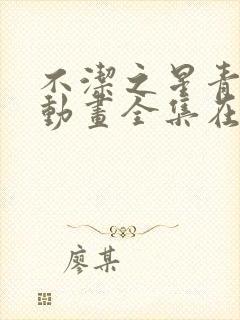 不潔之星青
動畫全集在
廖某